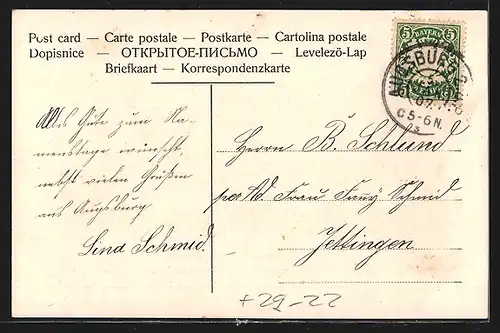 Post card — Carte postale — Postkarte — Cartolina postale
Dopisnice — ОТКРЫТОЕ-ПИСЬМО — Levelező-Lap
Briefkaart — Korrespondenzkarte
5 BAYERN 5
AUGSBURG 2
07.
5-6 N.
Alles Gute zum Na-
menstage wünscht,
nebst vielen Grüßen
aus Augsburg
Lind Schmid.
Herrn B. Schlund
per Ad. Frau Fanny Schmid
Jettingen
+ 29-22